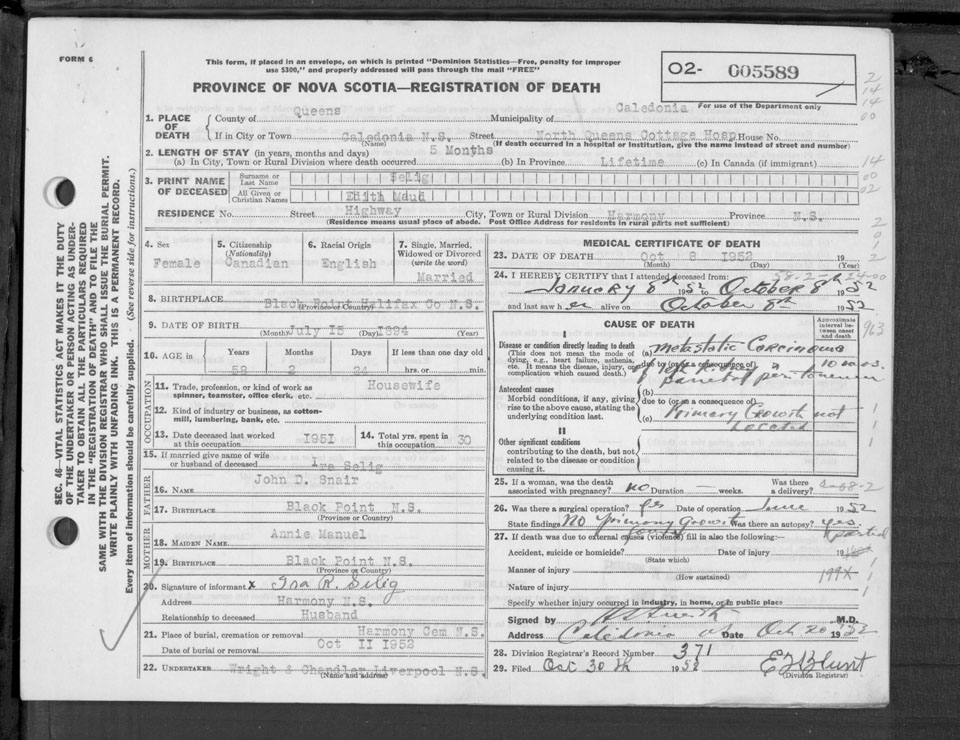 FORM 6
This form, if placed in an envelope, on which is printed "Dominion Statistics—Free, penalty for improper
use $300," and properly addressed will pass through the mail "FREE"
O2- 005589
PROVINCE OF NOVA SCOTIA—REGISTRATION OF DEATH
For use of the Department only
1. PLACE OF DEATH
County of Queens Municipality of Caledonia
If in City or Town Caledonia N.S. Street North Queens Cottage Hosp House No.
(Name) (If death occurred in a hospital or Institution, give the name instead of street and number)
2. LENGTH OF STAY (in years, months and days)
(a) In City, Town or Rural Division where death occurred 5 Months (b) In Province Lifetime (c) In Canada (if immigrant)
3. PRINT NAME OF DECEASED
Surname or Last Name Selig
All Given or Christian Names Edith Maud
RESIDENCE No. Street Highway City, Town or Rural Division Harmony Province N.S.
(Residence means usual place of abode. Post Office Address for residents in rural parts not sufficient)
4. Sex Female
5. Citizenship (Nationality) Canadian
6. Racial Origin English
7. Single, Married, Widowed or Divorced (write the word) Married
8. BIRTHPLACE Black Point Halifax Co N.S.
(Province or Country)
9. DATE OF BIRTH July I5 I894
(Month) (Day) (Year)
10. AGE in Years Months Days If less than one day old
58 2 24 hrs. or min.
OCCUPATION
11. Trade, profession, or kind of work as spinner, teamster, office clerk, etc. Housewife
12. Kind of industry or business, as cotton-mill, lumbering, bank, etc.
13. Date deceased last worked at this occupation I95I
14. Total yrs. spent in this occupation 30
15. If married give name of wife or husband of deceased Ira Selig
FATHER
16. NAME John D. Snair
17. BIRTHPLACE Black Point N.S.
(Province or Country)
MOTHER
18. MAIDEN NAME Annie Manuel
19. BIRTHPLACE Black Point N.S.
(Province or Country)
20. Signature of informant x Ira R. Selig
Address Harmony N.S.
Relationship to deceased Husband
21. Place of burial, cremation or removal Harmony Cem N.S.
Date of burial or removal Oct II I952
22. UNDERTAKER Wright & Chandler Liverpool N.S.
(Name and address)
MEDICAL CERTIFICATE OF DEATH
23. DATE OF DEATH Oct 8 I952 19
(Month) (Day) (Year)
24. I HEREBY CERTIFY that I attended deceased from:
January 8th 1952 to October 8th 1952
and last saw her alive on October 8th 1952
CAUSE OF DEATH
Approximate interval between onset and death
I
Disease or condition directly leading to death
(This does not mean the mode of dying, e.g., heart failure, asthenia, etc. It means the disease, injury, or complication which caused death.)
(a) Metastatic Carcinoma
due to (or as a consequence of) 10 mos.
parietal peritoneum
Antecedent causes
Morbid conditions, if any, giving rise to the above cause, stating the underlying condition last.
(b)
due to (or as a consequence of)
(c) Primary Growth not
located
II
Other significant conditions
contributing to the death, but not related to the disease or condition causing it.
25. If a woman, was the death associated with pregnancy? no Duration weeks. Was there a delivery?
26. Was there a surgical operation? yes Date of operation June 1952
State findings No primary Growth found Was there an autopsy? yes. partial
27. If death was due to external causes (violence) fill in also the following:-
Accident, suicide or homicide? Date of injury 19
(State which)
Manner of injury
(How sustained)
199X
Nature of injury
Specify whether injury occurred in industry, in home, or in public place
Signed by M.D.
Address Caledonia Date Oct 20 1952
28. Division Registrar's Record Number 371
29. Filed Oct 30th 1952 E J Blunt
(Division Registrar)
SEC. 46—VITAL STATISTICS ACT MAKES IT THE DUTY
OF THE UNDERTAKER OR PERSON ACTING AS UNDER-
TAKER TO OBTAIN ALL THE PARTICULARS REQUIRED
IN THE "REGISTRATION OF DEATH" AND TO FILE THE
SAME WITH THE DIVISION REGISTRAR WHO SHALL ISSUE THE BURIAL PERMIT.
WRITE PLAINLY WITH UNFADING INK. THIS IS A PERMANENT RECORD.
Every item of information should be carefully supplied. (See reverse side for instructions.)